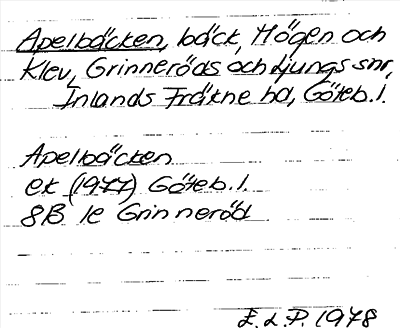 Apelbäcken, bäck, Högen och
Klev, Grinneröds och Ljungs snr,
Inlands Fräkne hd, Göteb. l.
Apelbäcken
ek (1977) Göteb. l.
8B 1e Grinneröd
E. L. P. 1978